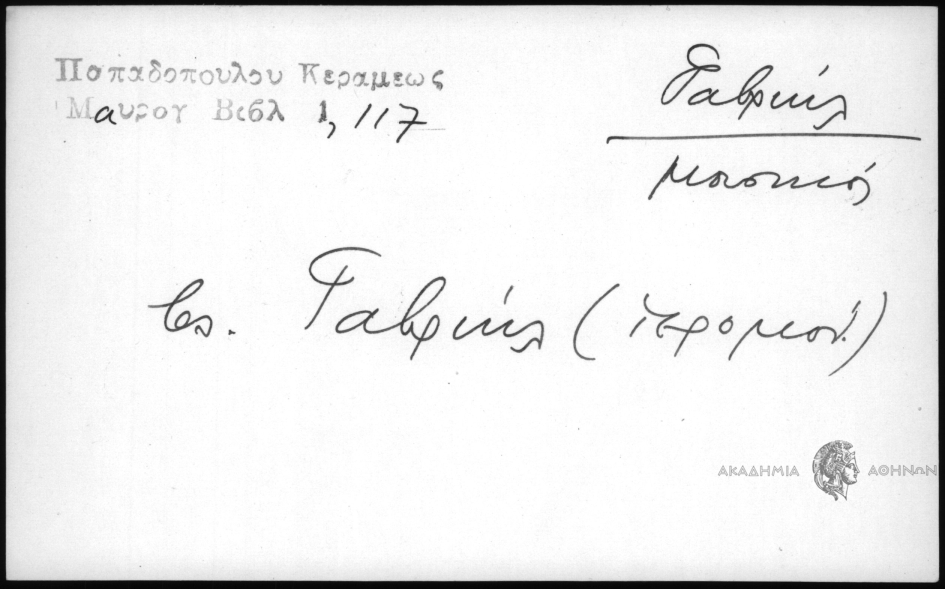 Παπαδοπουλου Κεραμεως
Μαυρογ Βιβλ 1, 117
Γαβριήλ
μουσικός
βλ. Γαβριήλ (ἱερομον.)
ΑΚΑΔΗΜΙΑ ΑΘΗΝΩΝ